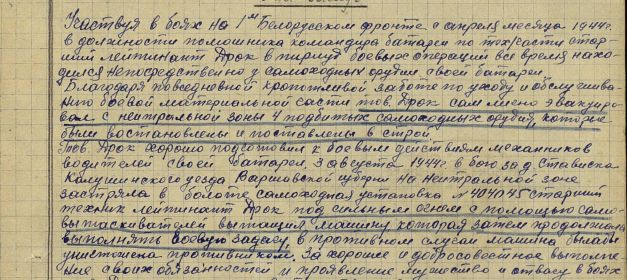 Участвуя в боях на 1ом Белорусском фронте с апреля месяца 1944г.
в должности помошника командира батареи по тех/части стар-
ший лейтинант Дрок в пириуд боевых операций все время нахо-
дился непосредственно у самоходных орудий своей батареи.
Благодаря повседневной кропотливой заботе по уходу и обслужива-
нию боевой материальной части тов. Дрок сам лично эвакуиро-
вал с нейтральной зоны 4 подбитых самоходных орудия, которые
были востановлены и поставлены в строй.
Тов. Дрок хорошо подготовил к боевым действиям механников
водителей своей батареи. 3 августа 1944г. в бою за д. Стависка
Калушинского уезда Варшовской губерни на нейтральной зоне
застряла в болоте самоходная установка № 404045 старший
техник лейтинант Дрок под сильным огнем с помощью само-
вытаскивателей вытащил машину которая затем продолжала
выполнять боевую задачу, в противном случаи машина была бы
уничтожена противником. За хорошее и добросовестное выполне-
ние своих обязанностей и проявление мужество и отвагу в боях